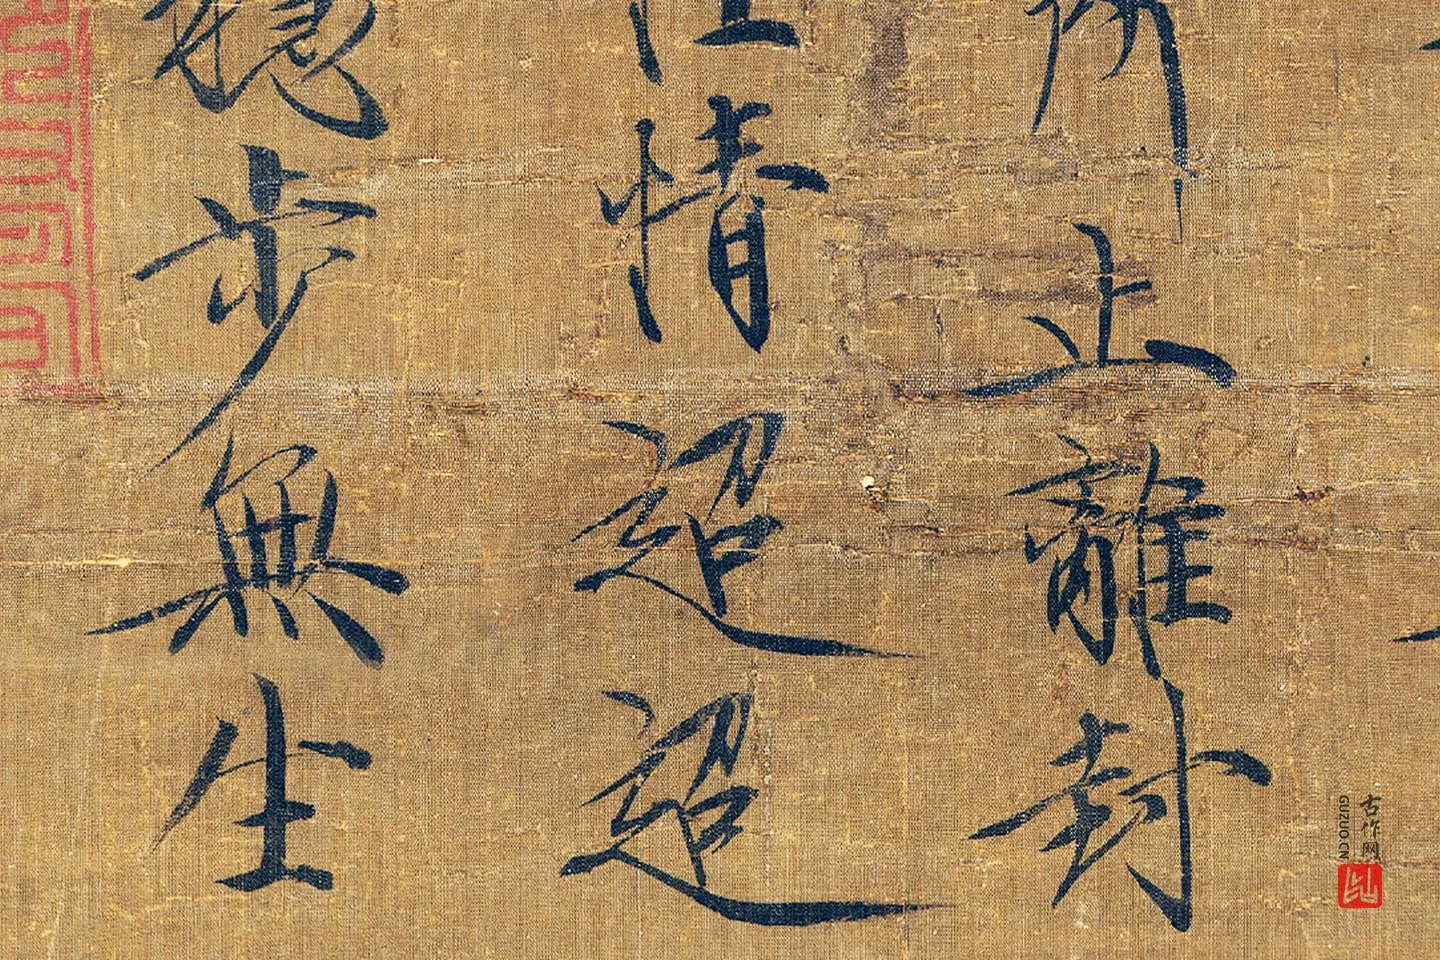 止離封
情迢迢
穩步無生
古作网
GUZUO.CN